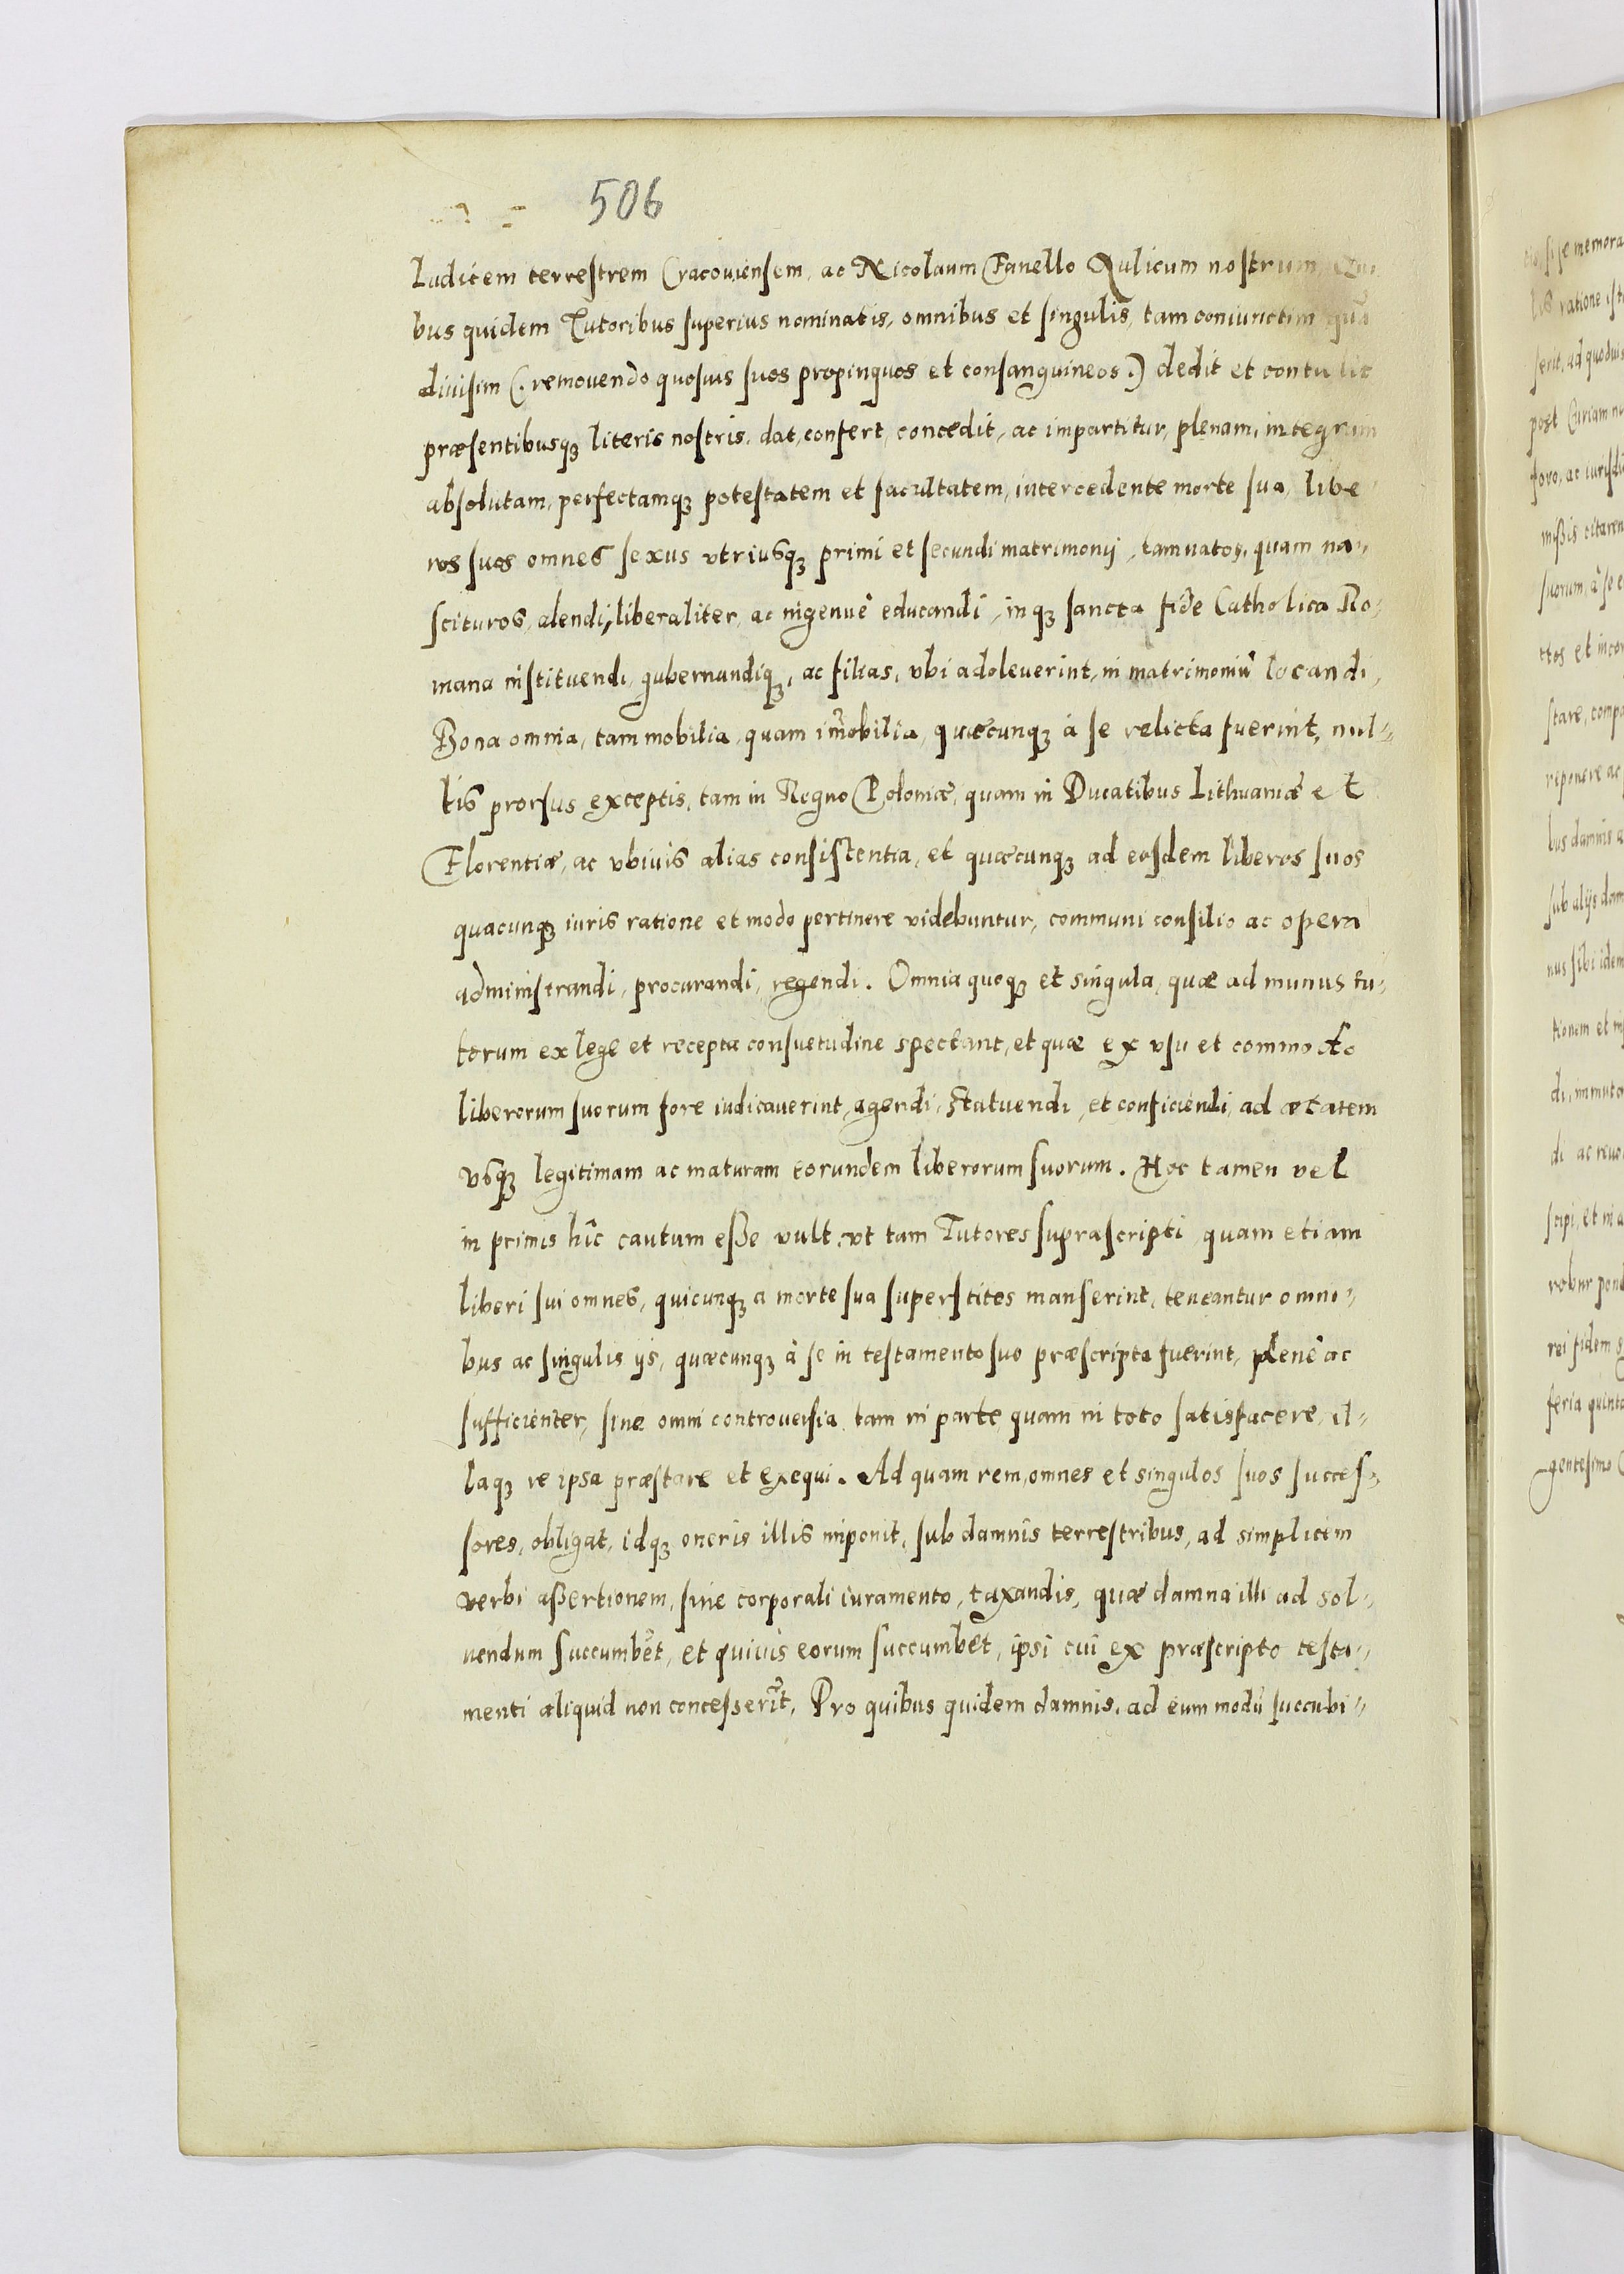 506
Iudicem terrestrem Cracouiensem, ac Nicolaum Fanello Aulicum nostrum, Qui
bus quidem Tutoribus superius nominatis, omnibus et singulis, tam coniunctim quā
diuisim (. remouendo quosuis suos propinquos et consanguineos .) dedit et contulit
præsentibusqȝ literis nostris, dat, confert, concedit, ac impartitur, plenam, integram
absolutam, perfectamqȝ potestatem et facultatem, intercedente morte sua, libe
ros suos omnes sexus vtriusqȝ primi et secundi matrimonij, tam natos, quam na,,
scituros, alendi, liberaliter, ac ingenuè educandi, inqȝ sancta fide Catholica Ro,
mana instituendi, gubernandiqȝ, ac filias, vbi adoleuerint, in matrimoniū locandi,
Bona omnia, tam mobilia, quam im̄obilia, quæcunqȝ à se relicta fuerint, nul,,
lis prorsus exceptis, tam in Regno Poloniæ, quam in Ducatibus Lithuaniæ et
Florentiæ, ac vbiuis alias consistentia, et quæcunqȝ ad eosdem liberos suos
quacunqȝ iuris ratione et modo pertinere videbuntur, communi consilio ac opera
administrandi, procurandi, regendi. Omnia quoqȝ et singula, quæ ad munus tu,
torum ex lege et recepta consuetudine spectant, et quæ ex vsu et commodo
liberorum suorum fore iudicauerint, agendi, statuendi, et conficiendi, ad ætatem
vsqȝ legitimam ac maturam eorundem liberorum suorum. Hoc tamen vel
in primis hîc cautum eße vult, vt tam Tutores suprascripti quam etiam
liberi sui omnes, quicunqȝ a morte sua superstites manserint, teneantur omni,,
bus ac singulis ijs, quæcunqȝ à se in testamento suo præscripta fuerint, plenè ac
sufficienter, sine omni controuersia tam in parte quam in toto satisfacere, il,,
laqȝ re ipsa præstare et exequi. Ad quam rem, omnes et singulos suos succes,,
sores, obligat, idqȝ oneris illis imponit, sub damnis terrestribus, ad simplicem
verbi aßertionem, sine corporali iuramento, taxandis, quæ damna illi ad sol,,
uendum succumbēt, et quiuis eorum succumbet, ipsi cui ex præscripto testa,,
menti aliquid non concesserīt, Pro quibus quidem damnis, ad eum modū succubi,,